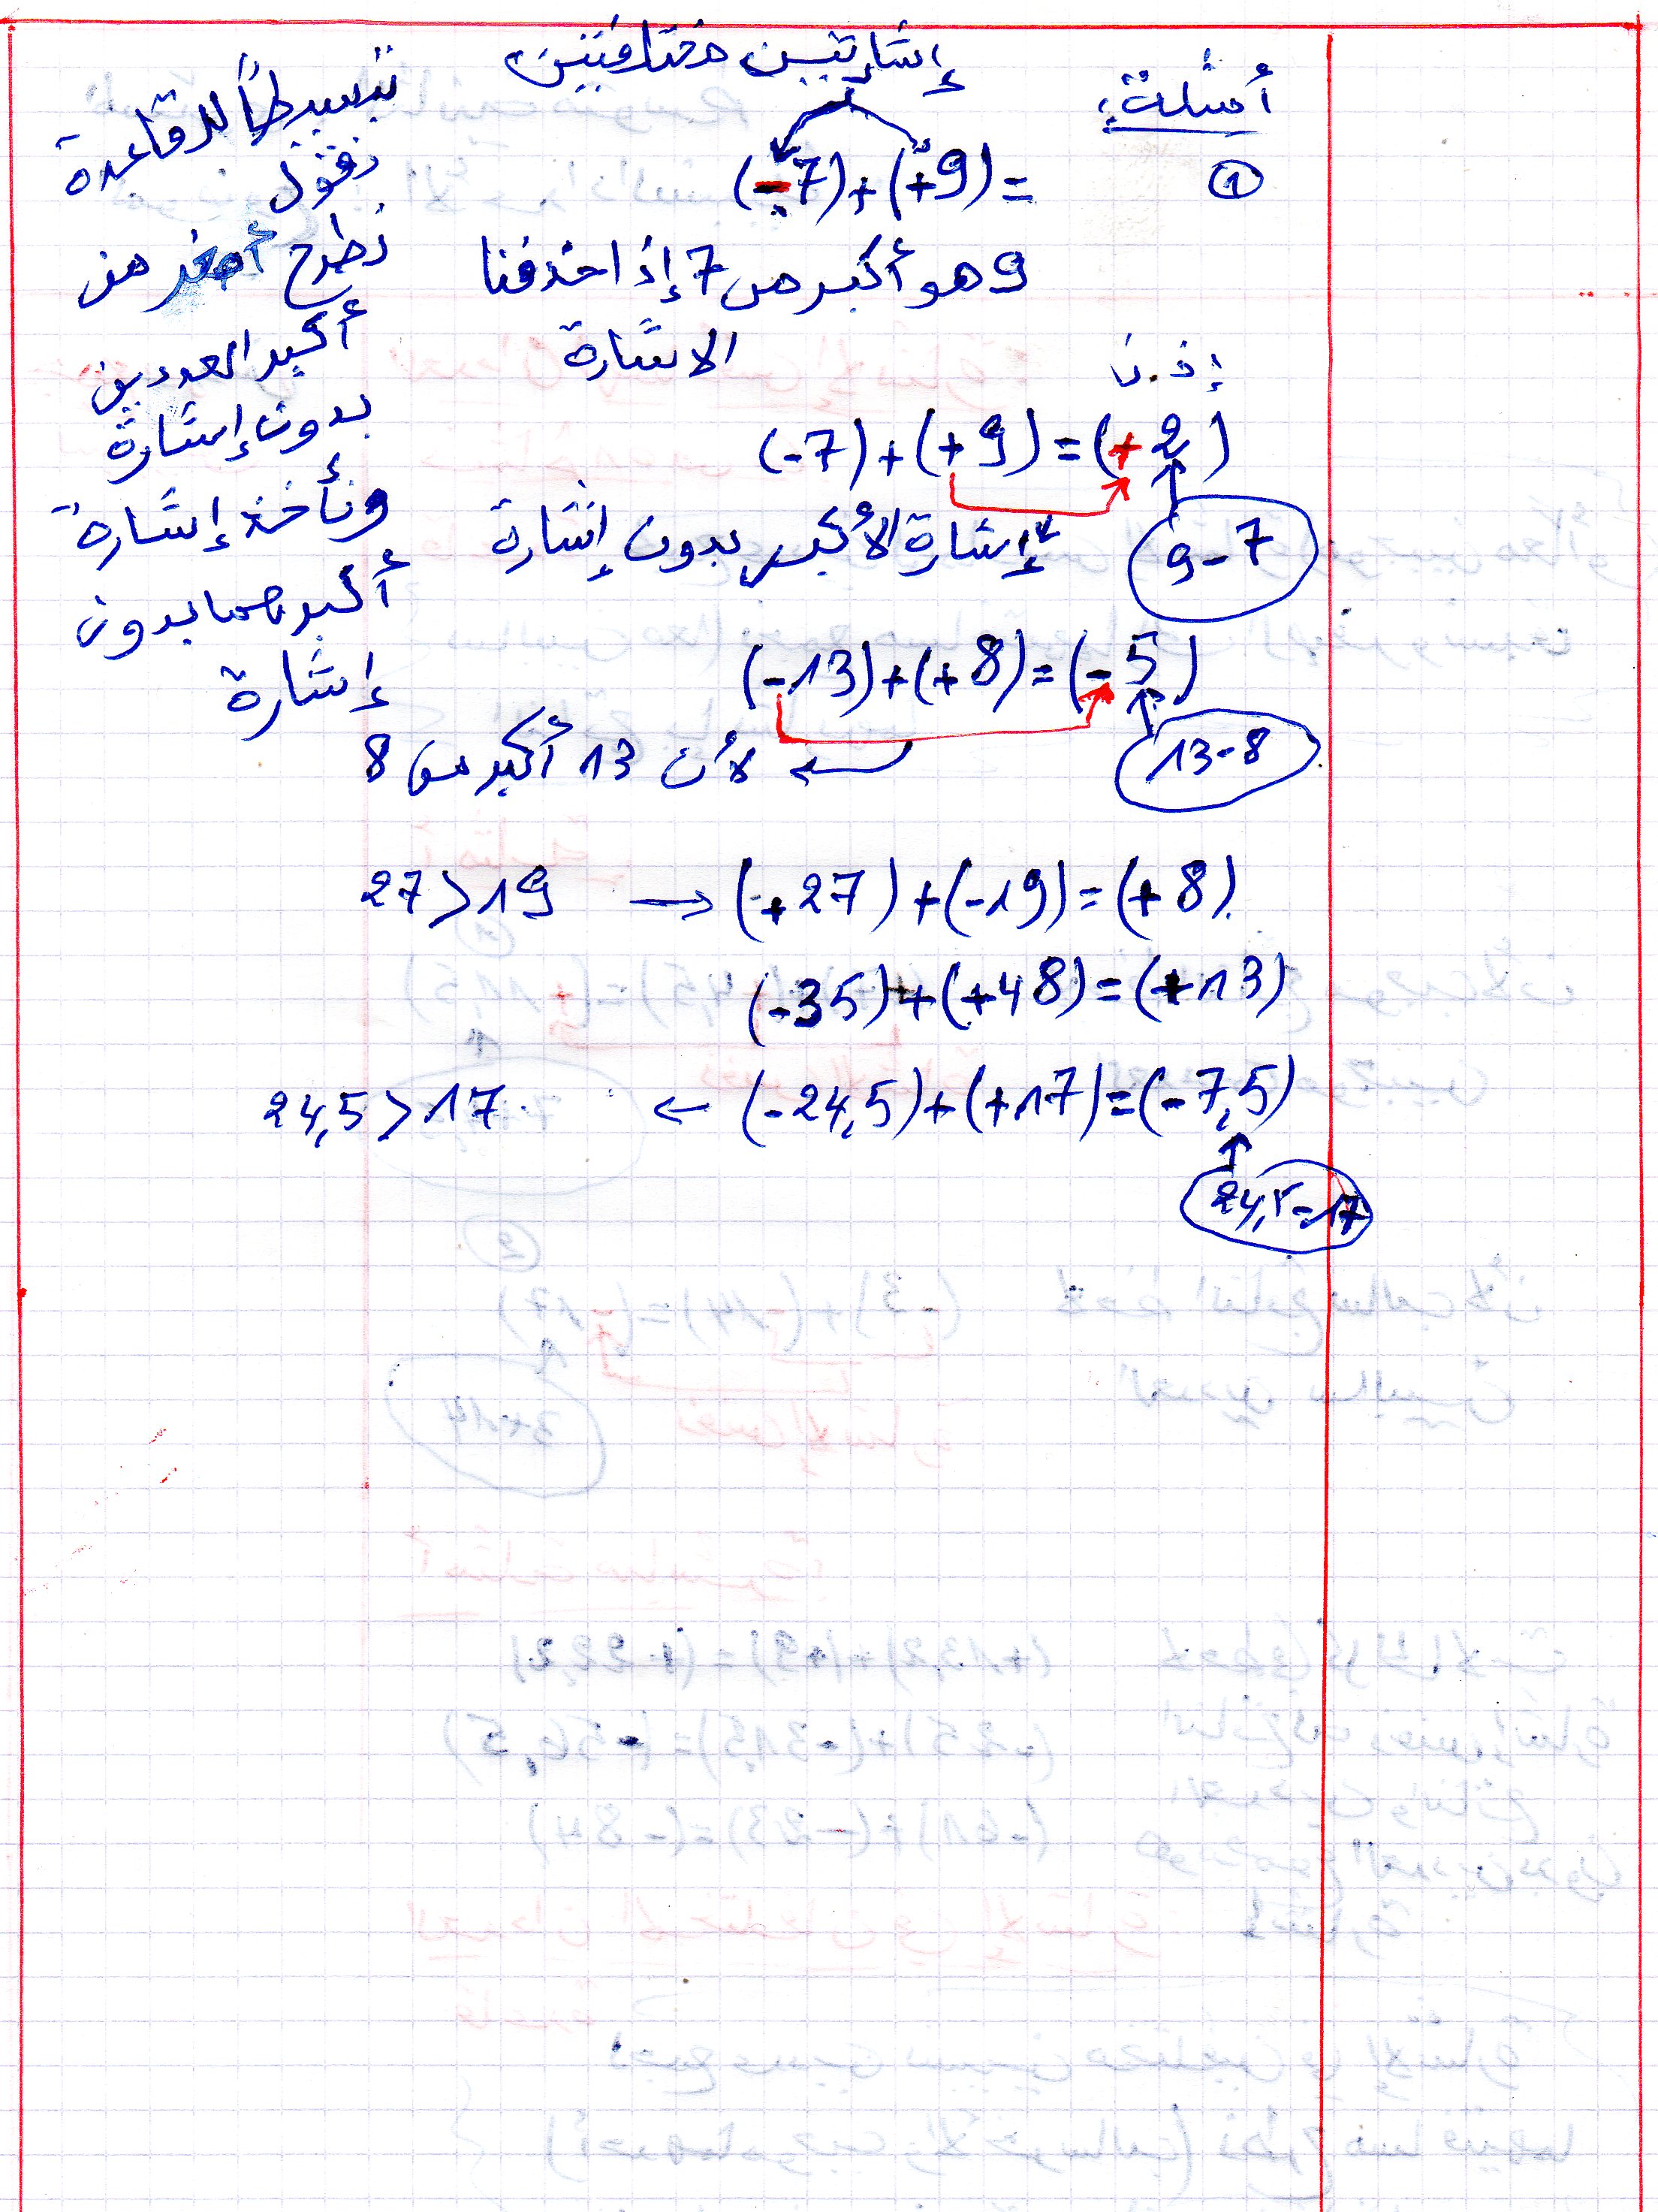 أمثلة:
إشارتين مختلفتين
① (-7)+(+9)=
9 هو أكبر من 7 إذا حذفنا
الاشارة
إذن
(-7)+(+9)=(+2)
9-7
إشارة الأكبر بدون إشارة
(-13)+(+8)=(-5)
13-8
لأن 13 أكبر من 8
27>19 → (+27)+(-19)=(+8)
(-35)+(+48)=(+13)
24,5>17 ← (-24,5)+(+17)=(-7,5)
24,5-17
تبسيطاً للقاعدة
نقول
نطرح أصغر من
أكبر العددين
بدون إشارة
ونأخذ إشارة
أكبرهما بدون
إشارة